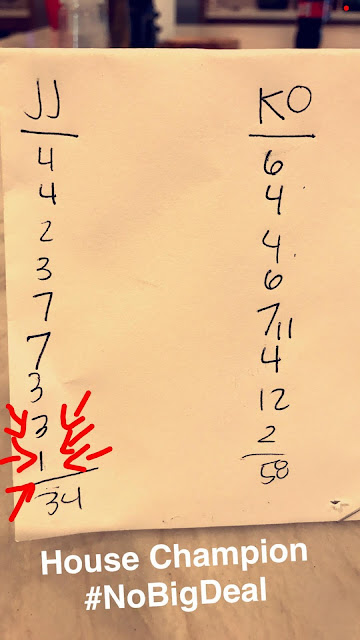 JJ
4
4
2
3
7
7
3
3
1
34
KO
6
4
4
6
7 11
4
12
2
58
House Champion
#NoBigDeal